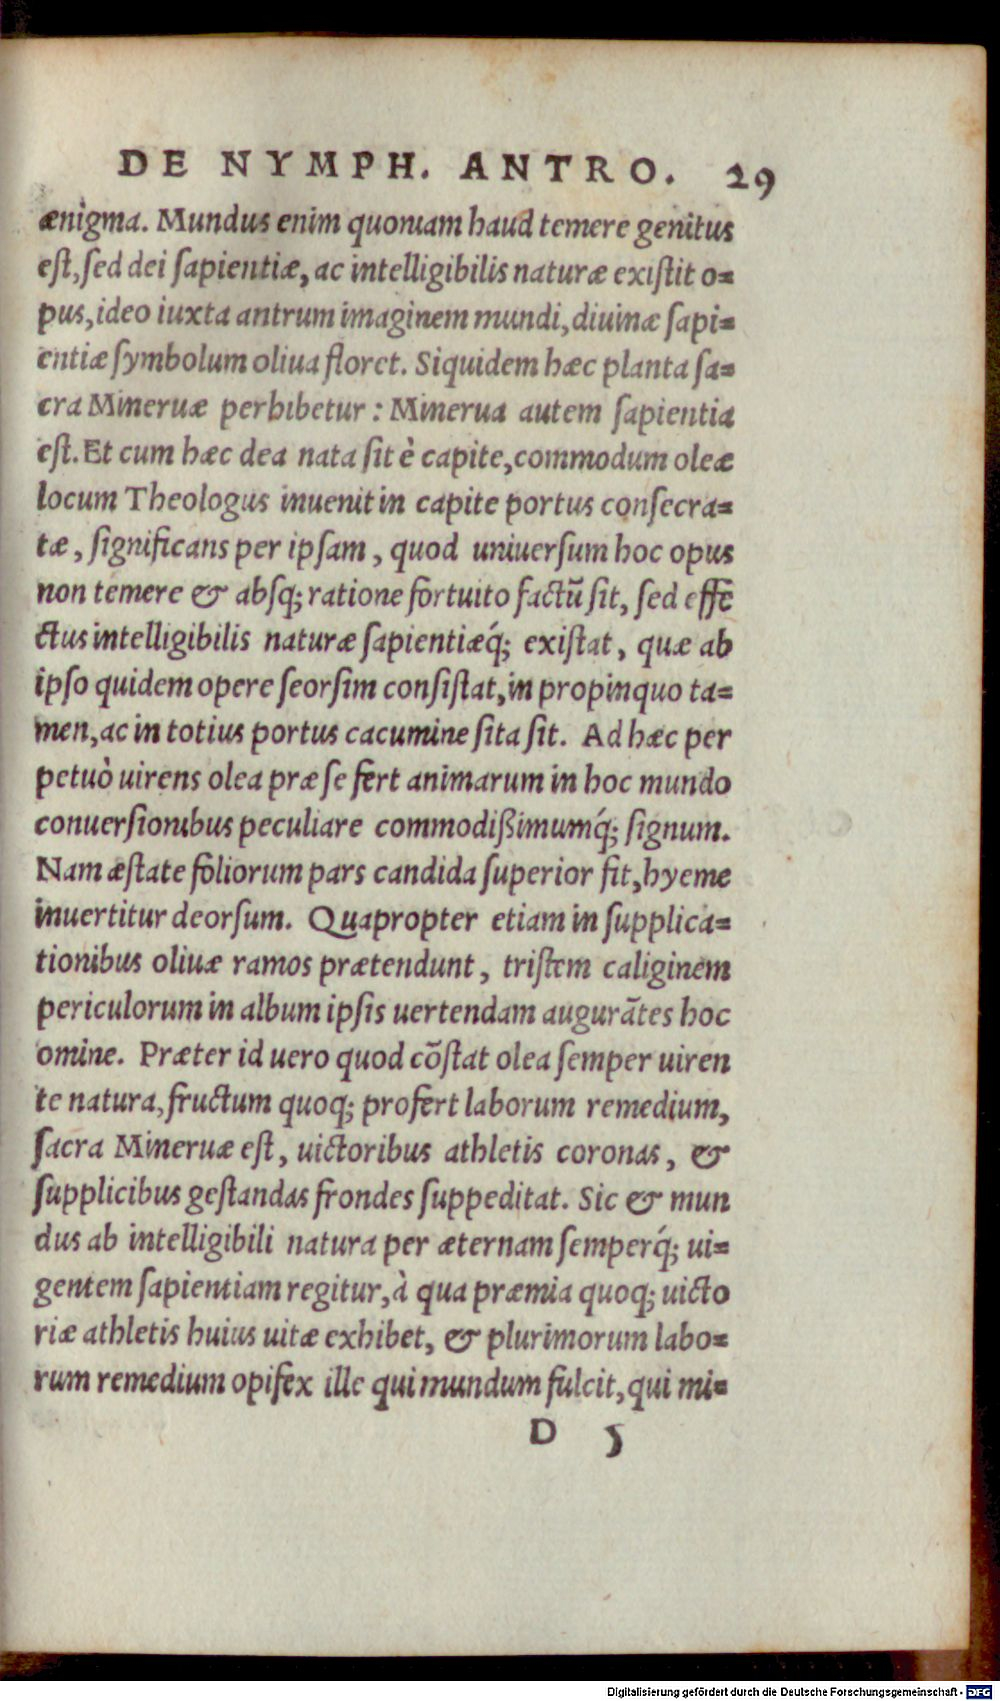 DE NYMPH. ANTRO. 29
ænigma. Mundus enim quoniam haud temere genitus
est, sed dei sapientiæ, ac intelligibilis naturæ existit o=
pus, ideo iuxta antrum imaginem mundi, diuinæ sapi=
entiæ symbolum oliua floret. Siquidem hæc planta sa=
cra Mineruæ perhibetur : Minerua autem sapientia
est. Et cum hæc dea nata sit è capite, commodum oleæ
locum Theologus inuenit in capite portus consecra=
tæ, significans per ipsam, quod uniuersum hoc opus
non temere & absq; ratione fortuito factū sit, sed effē
ctus intelligibilis naturæ sapientiæq́; existat, quæ ab
ipso quidem opere seorsim consistat, in propinquo ta=
men, ac in totius portus cacumine sita sit. Ad hæc per
petuò uirens olea præ se fert animarum in hoc mundo
conuersionibus peculiare commodißimumq́; signum.
Nam æstate foliorum pars candida superior fit, hyeme
inuertitur deorsum. Quapropter etiam in supplica=
tionibus oliuæ ramos prætendunt, tristem caliginem
periculorum in album ipsis uertendam augurātes hoc
omine. Præter id uero quod cōstat olea semper uiren
te natura, fructum quoq; profert laborum remedium,
sacra Mineruæ est, uictoribus athletis coronas, &
supplicibus gestandas frondes suppeditat. Sic & mun
dus ab intelligibili natura per æternam semperq́; ui=
gentem sapientiam regitur, à qua præmia quoq; uicto
riæ athletis huius uitæ exhibet, & plurimorum labo=
rum remedium opifex ille qui mundum fulcit, qui mi=
D 5
Digitalisierung gefördert durch die Deutsche Forschungsgemeinschaft - DFG